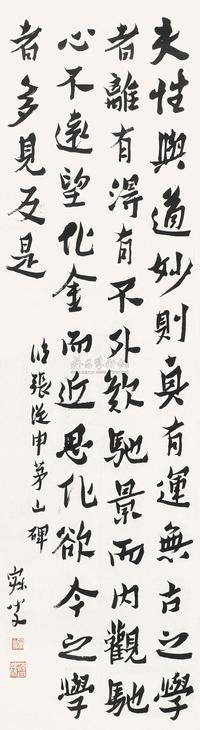 夫性與道妙則真有運無古之學
者離有得有不外馳景而內觀馳
心不遠望化金而近思化欲今之學
者多見反是
臨張從申茅山碑
寐叟